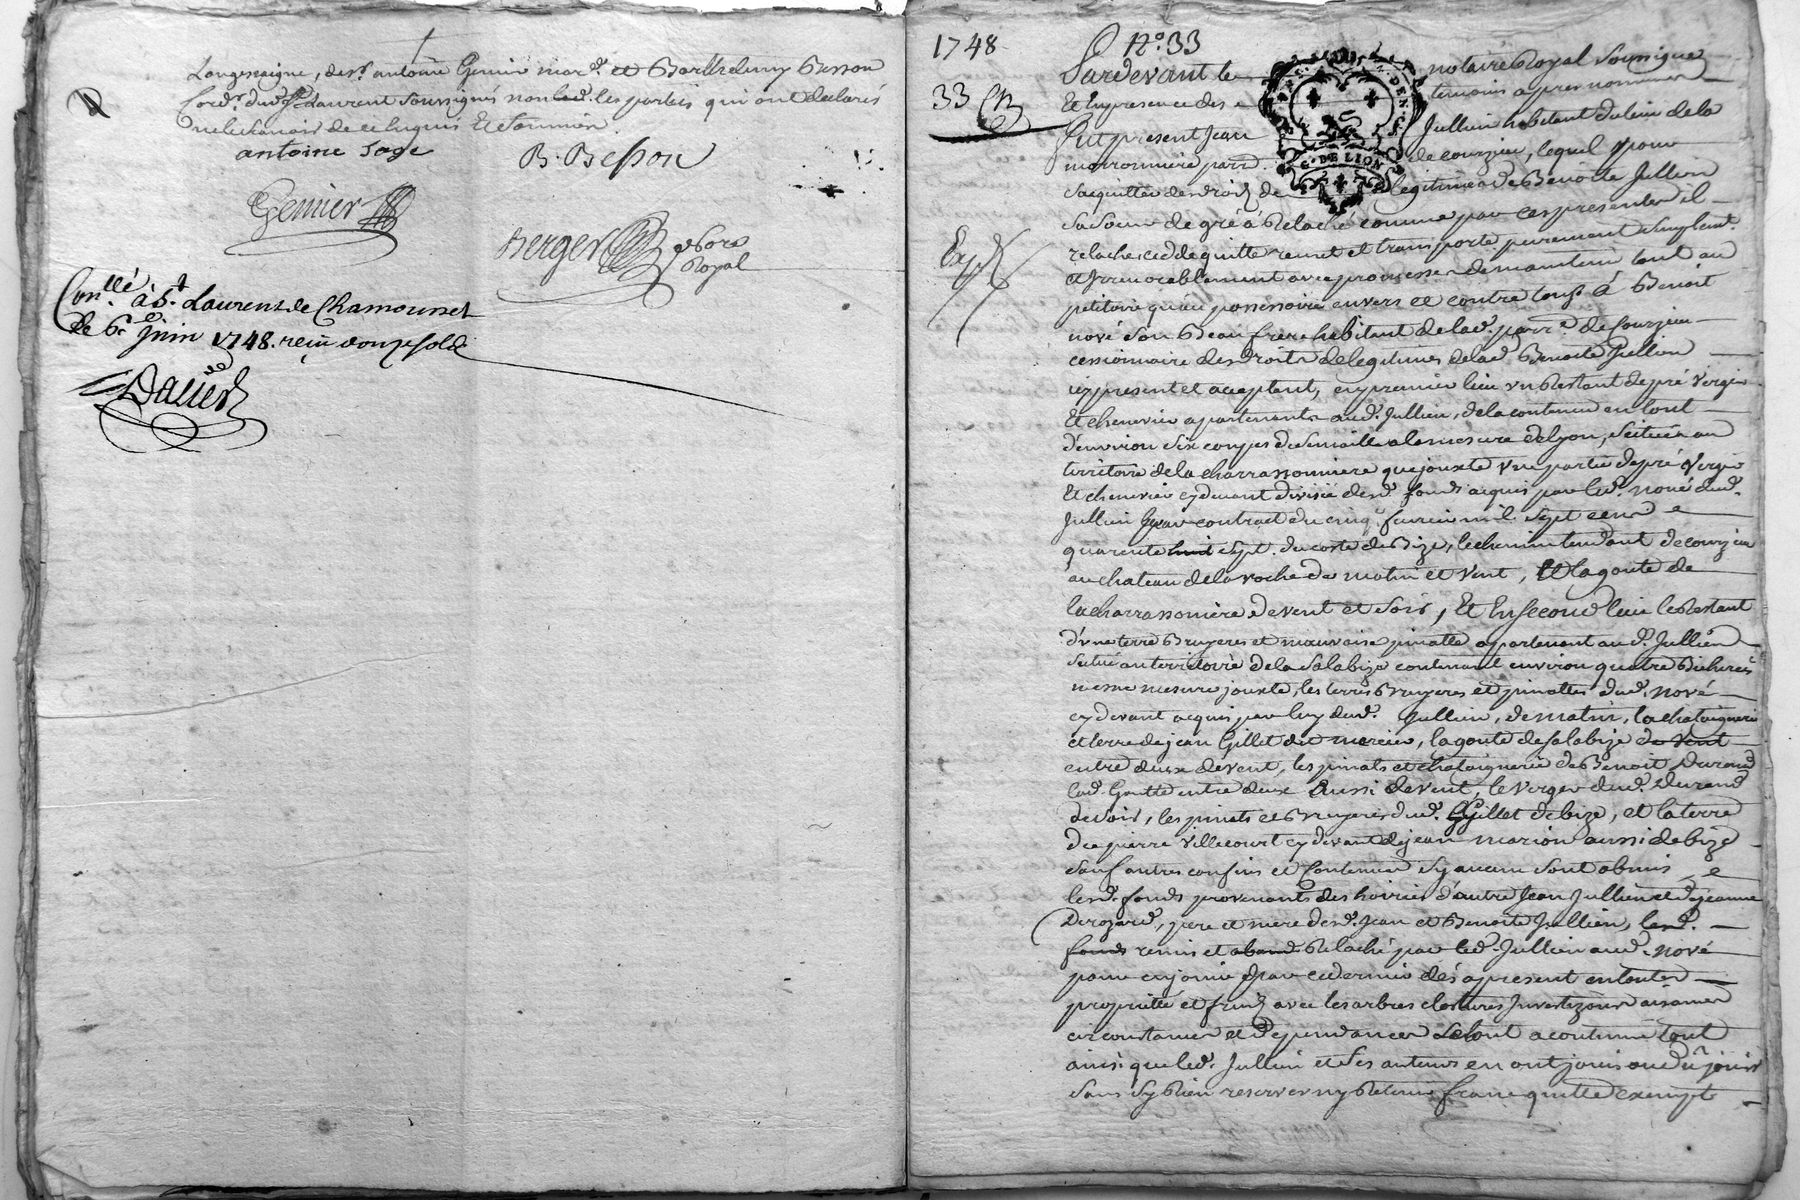 Longessaigne, de Sr. antoine Genier mard. et Barthelemy Besson
Cord. dud. St Laurent soussignés non led. les parties qui ont declarés
ne le scavoir de ce Enquis Et Sommés
antoine Sage
B. Besson
Genier
Berger
Royal
Conllé. à St. Laurent de Chamousset
le 6e. Juin 1748. reçu douze sols
1748
No. 33
33
Exp
Pardevant le notaire Royal soussigné
Et En presence des temoins apres nommés
fut present Jean Jullien habitant du lieu de la
marronniere parr. de courzieu, lequel pour
s'aquitter des droits de legitime de Benoite Jullien
sa soeur de gré à Relaché comme par ces presentes il
relache cede quitte remet et transporte purement simplemt.
et irrevocablement avec promesse de maintenir tant au
petitoire qu'au possessoire envers et contre tous à Benoit
nové son Beau frere habitant de lad. parre. de Courzieu
cessionnaire des droits de legitimes de lad. Benoite Jullien
icy present et acceptant, en premier lieu un Restant de pré verger
Et cheneviere apartenants aud. Jullien, de la contenue en tout
d'environ six coupes de semaille a la mesure de lyon, scitués au
territoire de la charrassonniere que jouxte une partie de pré Verger
Et chenevier cy devant divisée desd. fonds acquis par led. nové dud.
Jullien par contract du cinq fevrier mil sept cens
quarente huit sept. du costé de Bize, le chemin tendant de courzieu
au chateau de la roche de matin et vent, Et la goute de
la charrassoniere de vent et soir, Et En second lieu le Restant
d'une terre Bruyeres et mauvaise pinatte apartenant aud. Jullien
scitué au territoire de la Salabize contenant environ quatre Bicherées
mesme mesure jouxte, les terres Bruyeres et pinattes dud. nové
cy devant acquis par luy dud. Jullien, de matin, la chataignerie
et terre de jean Gillet dit mercier, la goute de salabize de vent
entre deux de vent, les pinats et chataignerie de Benoit Durand
lad. Goutte entre deux aussi de vent, le verger dud. Durand
de soir, les pinats et Bruyeres dud. Gillet de bize, et la terre
de pierre Villecourt cy devant de jean marion aussi de bize
sauf autres confins et contenue sy aucuns sont obmis
lesd. fonds provenants des hoiries d'autre Jean Jullien et de jeanne
Derozard, pere et mere desd. Jean et Benoite Jullien, lesd.
fonds remis et aband Relaché par led. Jullien aud. nové
pour en jouir par ce dernier dés apresent en toutes
proprietté et fruits avec les arbres clotures Investizons aisances
circonstances et Dependances Le tout a continué tout
ainsi que led. Jullien et ses auteurs en ont joui ou dû jouir
sans sy Rien reserver ny Retenir franc quitte exempt